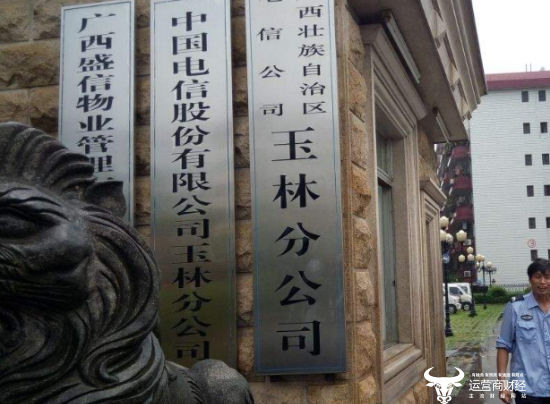 西壮族自治区
电信公司
玉林分公司
中国电信股份有限公司玉林分公司
广西盛信物业管理
运营商财经